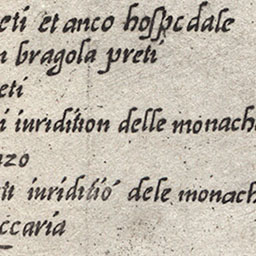 eti et anco hospedale
n bragola preti
eti
i iuridition delle monach
nzo
ti iuriditiõ dele monach
ccaria